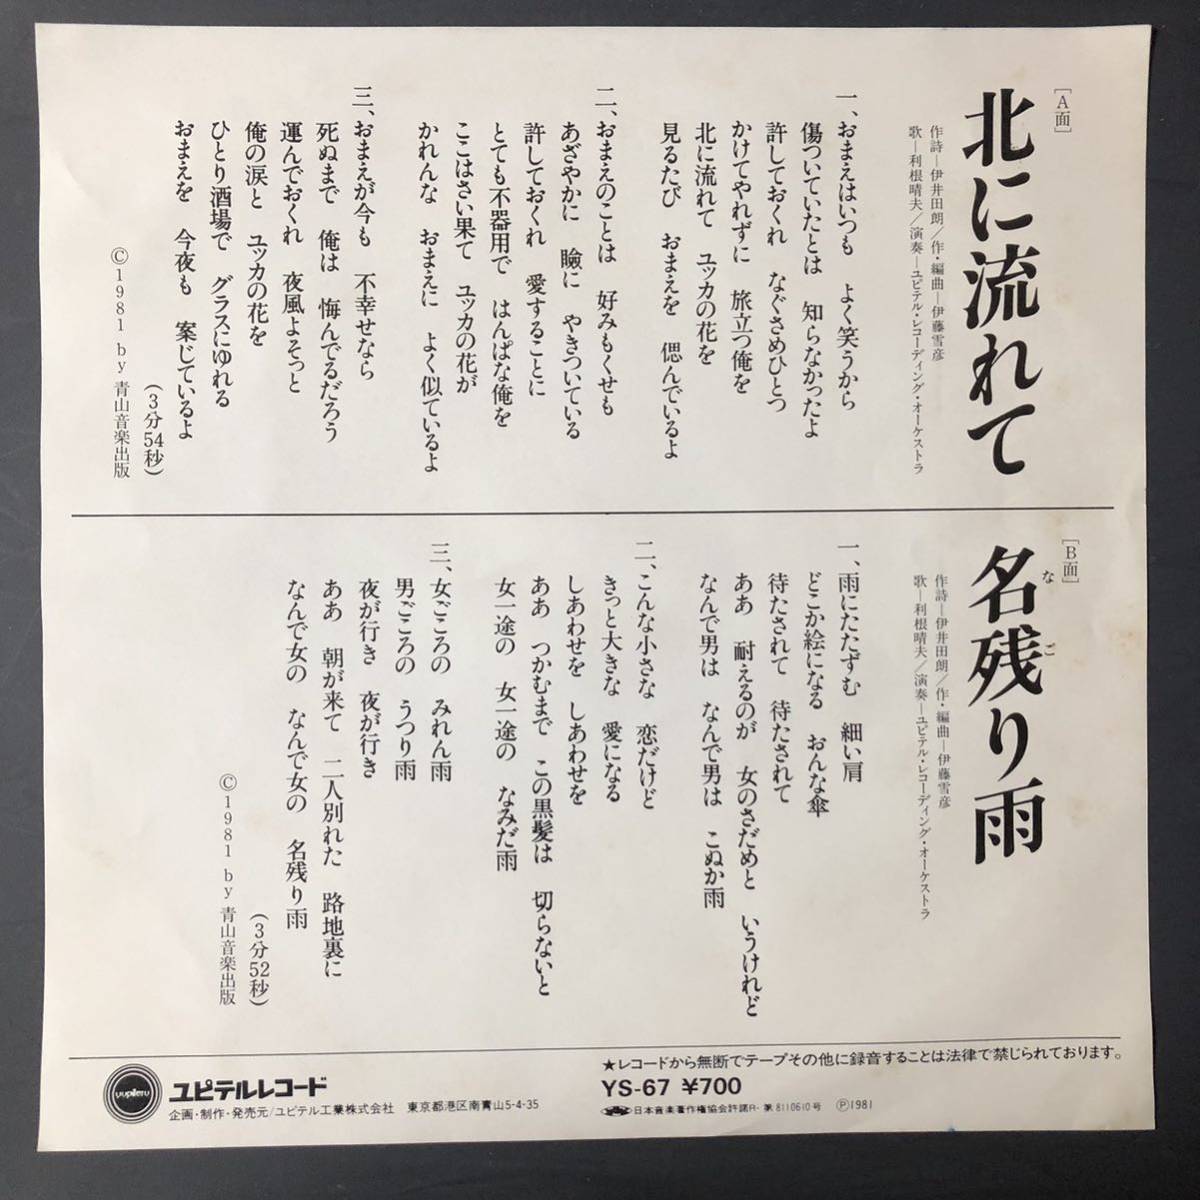 [A面]
北に流れて
作詩―伊井田朗/作・編曲―伊藤雪彦
歌―利根晴夫/演奏―ユピテル・レコーディング・オーケストラ
一、おまえはいつも よく笑うから
傷ついていたとは 知らなかったよ
許しておくれ なぐさめひとつ
かけてやれずに 旅立つ俺を
北に流れて ユッカの花を
見るたび おまえを 偲んでいるよ
二、おまえのことは 好みもくせも
あざやかに 瞼に やきついている
許しておくれ 愛することに
とても不器用で はんぱな俺を
ここはさい果て ユッカの花が
かれんな おまえに よく似ているよ
三、おまえが今も 不幸せなら
死ぬまで 俺は 悔んでるだろう
運んでおくれ 夜風よそっと
俺の涙と ユッカの花を
ひとり酒場で グラスにゆれる
おまえを 今夜も 案じているよ
(3分54秒)
©1981 by 青山音楽出版
[B面]
名残り雨
なご
作詩―伊井田朗/作・編曲―伊藤雪彦
歌―利根晴夫/演奏―ユピテル・レコーディング・オーケストラ
一、雨にたたずむ 細い肩
どこか絵になる おんな傘
待たされて 待たされて
ああ 耐えるのが 女のさだめと いうけれど
なんで男は なんで男は こぬか雨
二、こんな小さな 恋だけど
きっと大きな 愛になる
しあわせを しあわせを
ああ つかむまで この黒髪は 切らないと
女一途の 女一途の なみだ雨
三、女ごころの みれん雨
男ごころの うつり雨
夜が行き 夜が行き
ああ 朝が来て 二人別れた 路地裏に
なんで女の なんで女の 名残り雨
(3分52秒)
©1981 by 青山音楽出版
★レコードから無断でテープその他に録音することは法律で禁じられております。
yupiteru
ユピテルレコード
YS-67 ¥700
企画・制作・発売元/ユピテル工業株式会社 東京都港区南青山5-4-35
日本音楽著作権協会許諾R-第8110610号 ℗1981